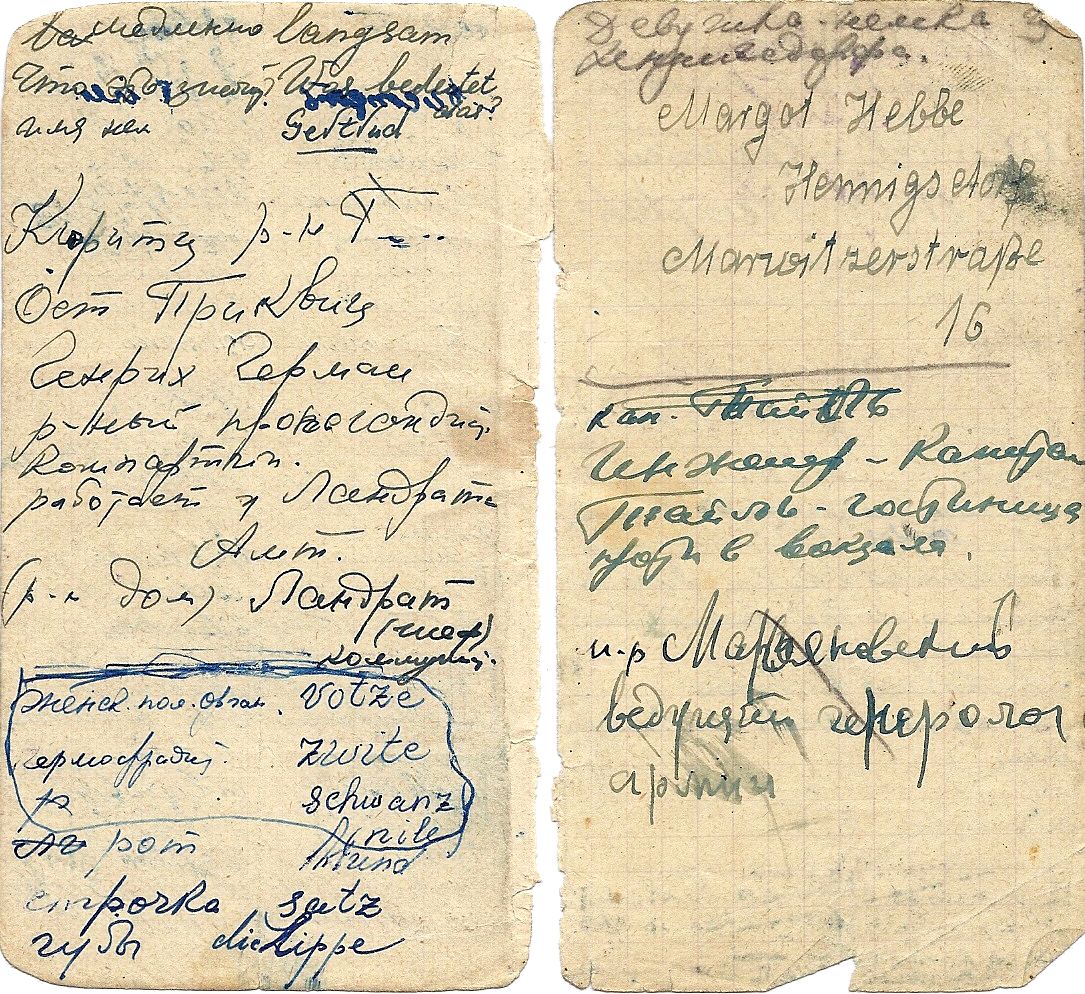 медленно langsam
Что обозначает? Was bedeutet
das?
имя нем Gertrud
Кюритц р-н Т...
Ост Приквиц
Генрих Герман
р-ный пропагандист
Компартии.
работает у Ландрата
Амт.
(р-н дом) Ландрат
(шеф)
коммунист.
женск. пол. орган. Votze
гермофродит. zwite
schwanz
nile
рот Mund
строчка satz
губы die Lippe
Девушка-немка из
Хеннигсдорфа.
Margot Hebbe
Hennigsdorf
Marwitzerstraße
16
кап. Тайль
Инженер - Капитан
Тайль - гостиница
против вокзала.
м-р Марьяновский
ведущий венеролог
армии